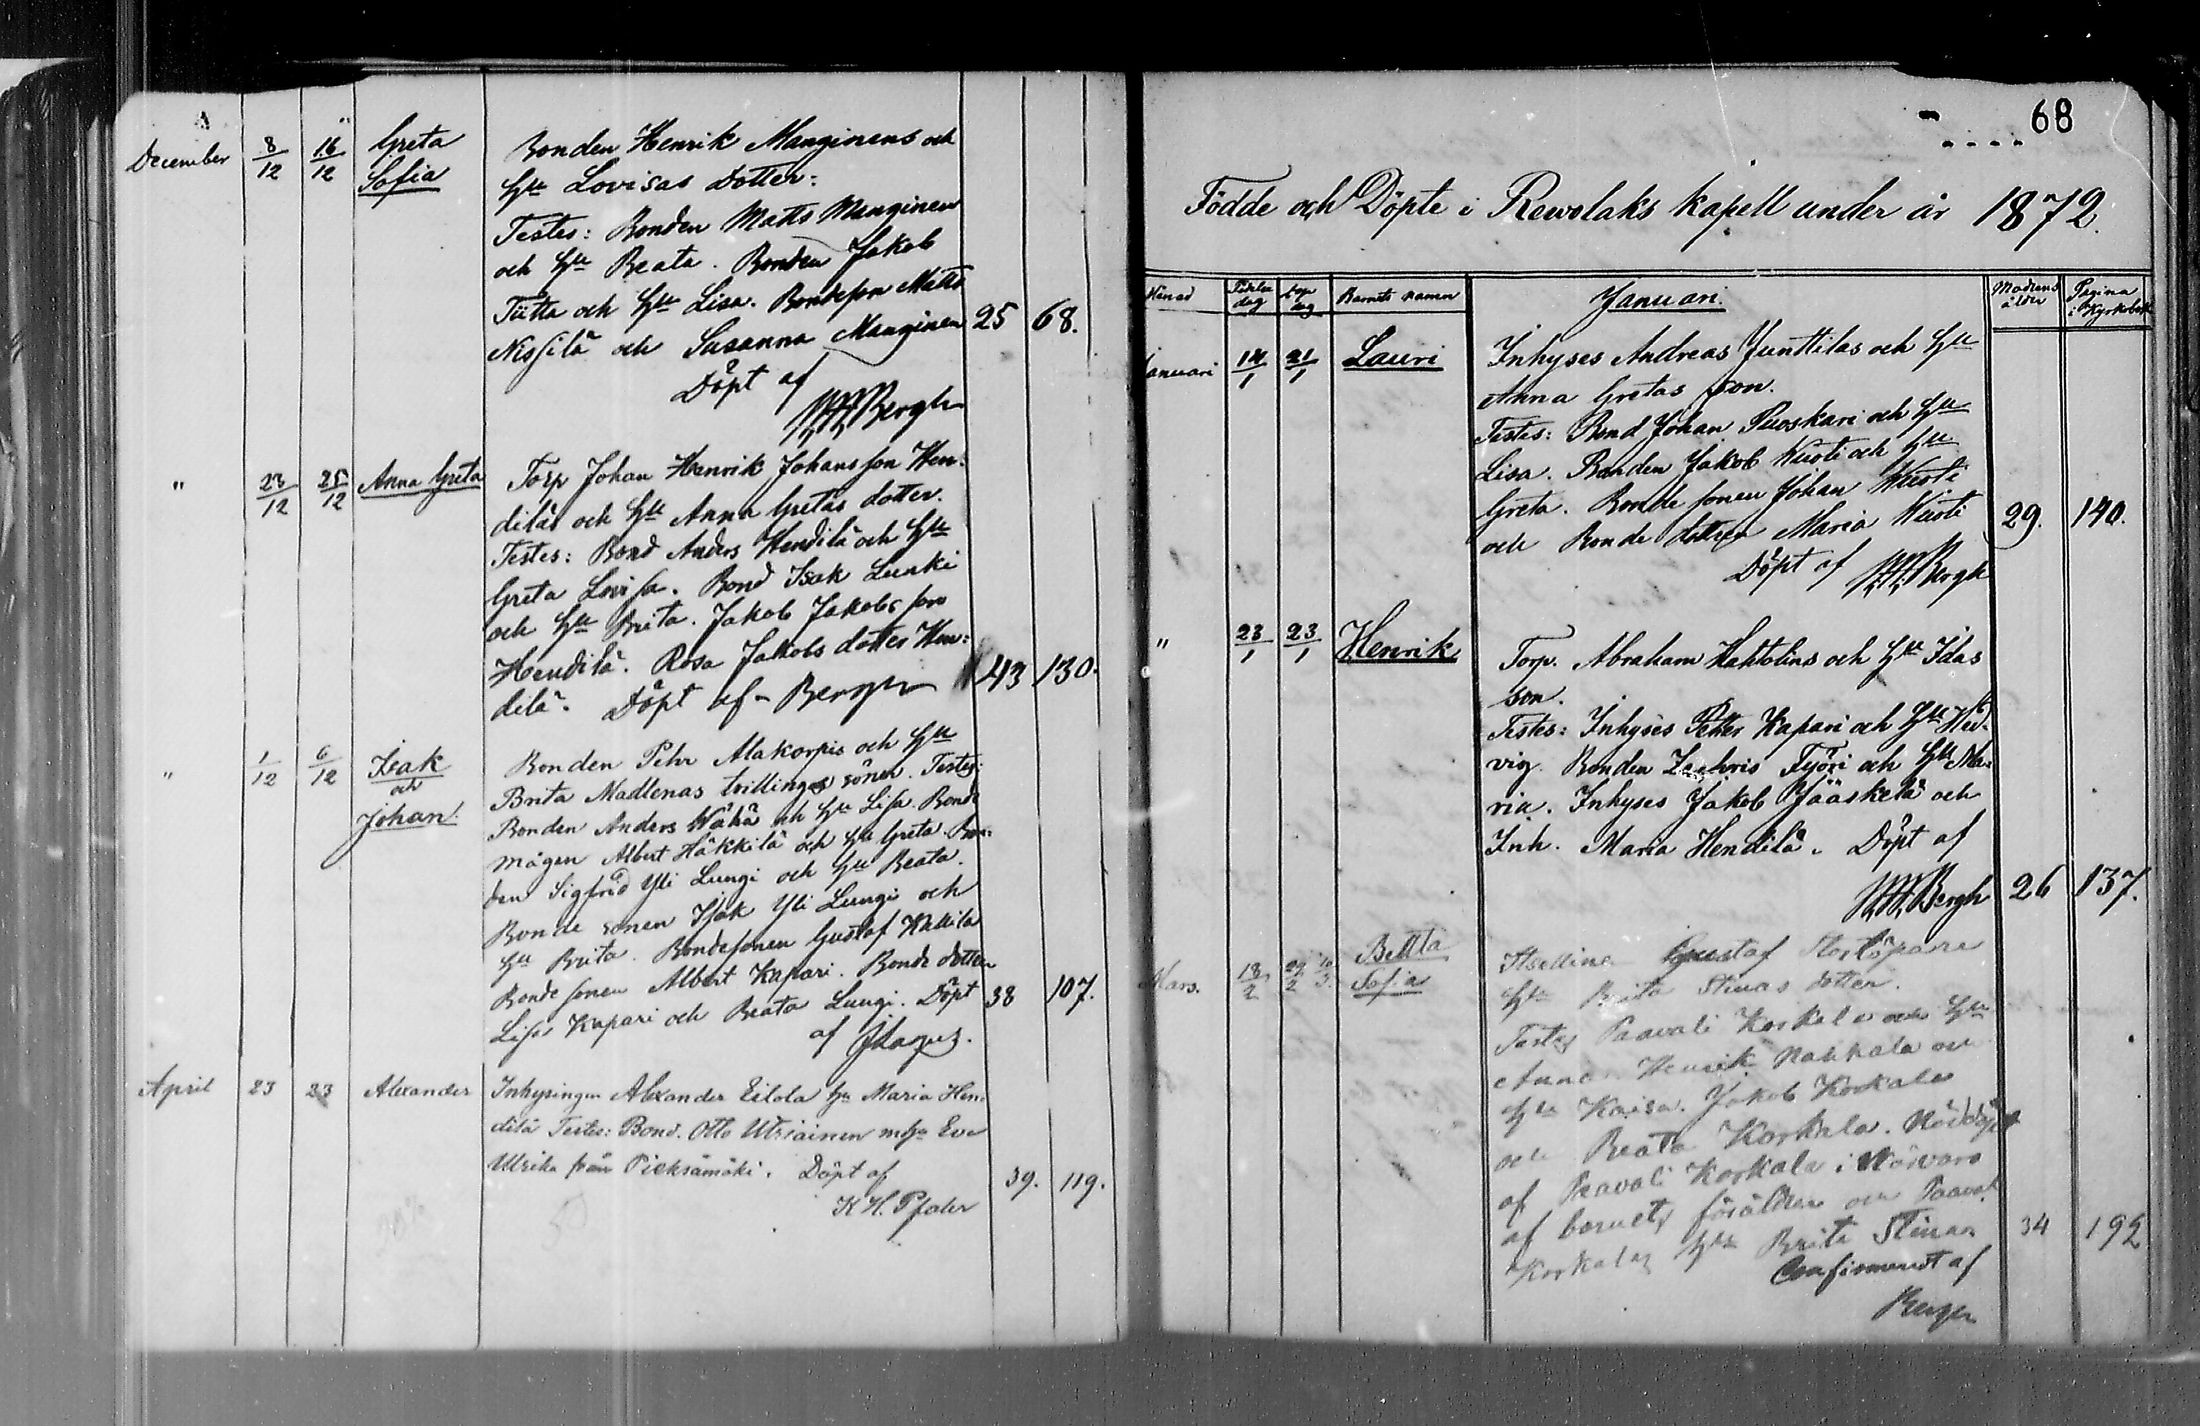 December 8/12 16/12 Greta Sofia
Bonden Henrik Manginens och
Hu Lovisas dotter:
Testes: Bonden Matts Manginen
och Hu Beata. Bonden Jakob
Tütta och Hu Lisa. Bondeson Matts
Nissilä och Susanna Manginen 25 68.
Döpt af
Bergh
" 23/12 25/12 Anna Greta
Torp Johan Henrik Johansson Hen:
diläs och Hu Anna Gretas dotter.
Testes: Bond Anders Hendilä och Hu
Greta Lovisa. Bond Isak Lunki
och Hu Brita. Jakob Jakobsson
Hendilä. Rosa Jakobs dotter Hen:
dilä. Döpt af Bergh 43 130.
" 1/12 6/12 Isak och Johan.
Bonden Pehr Alakorpis och Hu
Brita Madlenas trillinges söner. Testes:
Bonden Anders Wähä och Hu Lisa. Bonde
mågen Albert Häkkilä och Hu Greta. Bon:
den Sigfrid Yli Lungi och Hu Beata.
Bonde sonen Isak Yli Lungi och
Hu Brita. Bondesonen Gustaf Kallila
Bonde sonen Albert Kapari. Bonde dotter
Lisa Kapari och Beata Lungi. Döpt 38 107.
af
April 23 23 Alexander
Inhysingen Alexander Eilola Hu Maria Hen
dilä Testes: Bond. Otto Utriainen m Hu Eva
Ulrika från Pieksämäki. Döpt af
K H. Pfaler 39. 119.
68
Födde och Döpte i Rewolaks kapell under år 1872.
Månad Födelse dag Dop dag Barnets namn Januari. Modrens ålder Pagina i Kyrkobok
Januari 14/1 21/1 Lauri
Inhyses Andreas Junttilas och Hu
Anna Gretas son.
Testes: Bond Johan Puoskari och Hu
Lisa. Bonden Jakob Kuoti och Hu
Greta. Bonde sonen Johan Kuoti
och Bonde dottren Maria Kuoti 29. 140.
Döpt af Bergh
" 23/1 23/1 Henrik
Torp. Abraham Hahtolins och Hu Idas
son.
Testes: Inhyses Petter Kapari och Hu Hed:
vig. Bonden Zachris Työri och Hu Ma:
ria. Inhyses Jakob Jääskelä och
Inh. Maria Hendilä. Döpt af
Bergh 26 137.
Mars. 18/2 29/2 10/3 Sofia
Gustaf
Hu Brita Stinas dotter.
Testes Paavali Korkala och Hu
Anna. Henrik Nahkala och
Hu Kaisa. Jakob Korkala
och Beata Korkala. Nöddöpt
af Paavali Korkala i närvaro
af barnets föräldrar och Paavali
Korkalas Hu Brita Stinas 34 192
Confirmerat af
Bergh